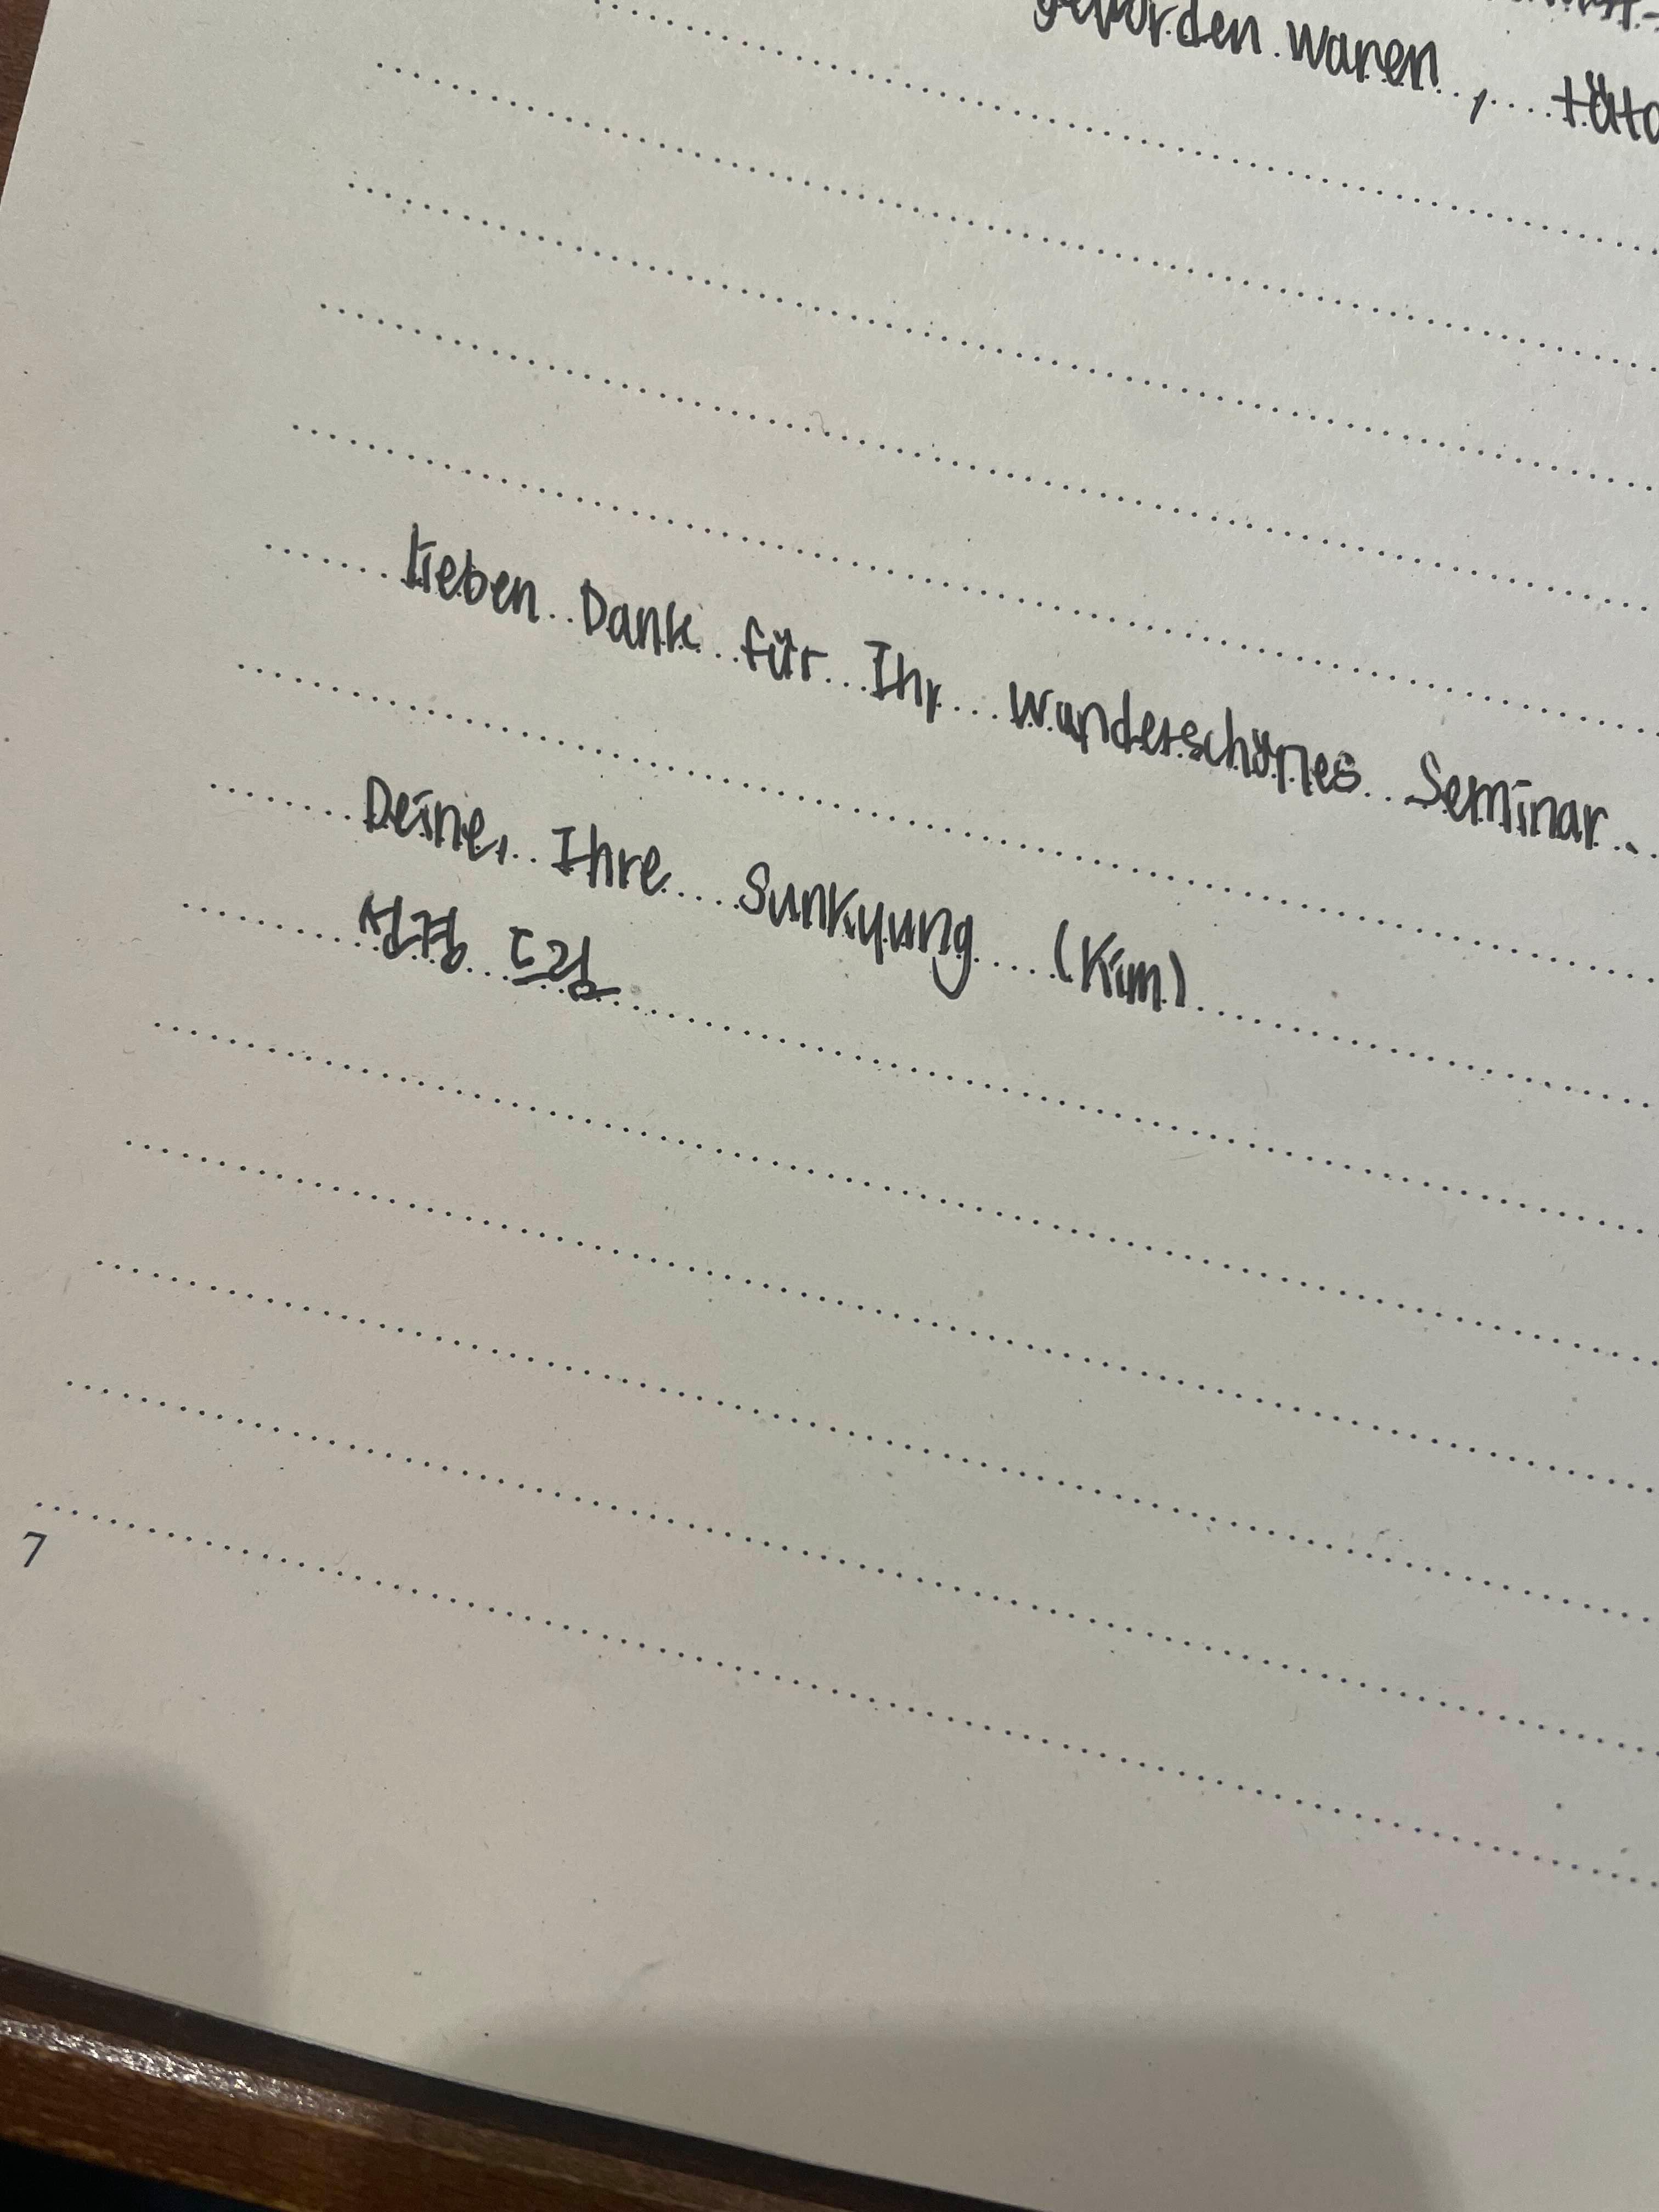 geworden waren,
Lieben Dank für Ihr wunderschönes Seminar.
Deine, Ihre Sunkyung (Kim)
선경 드림
7